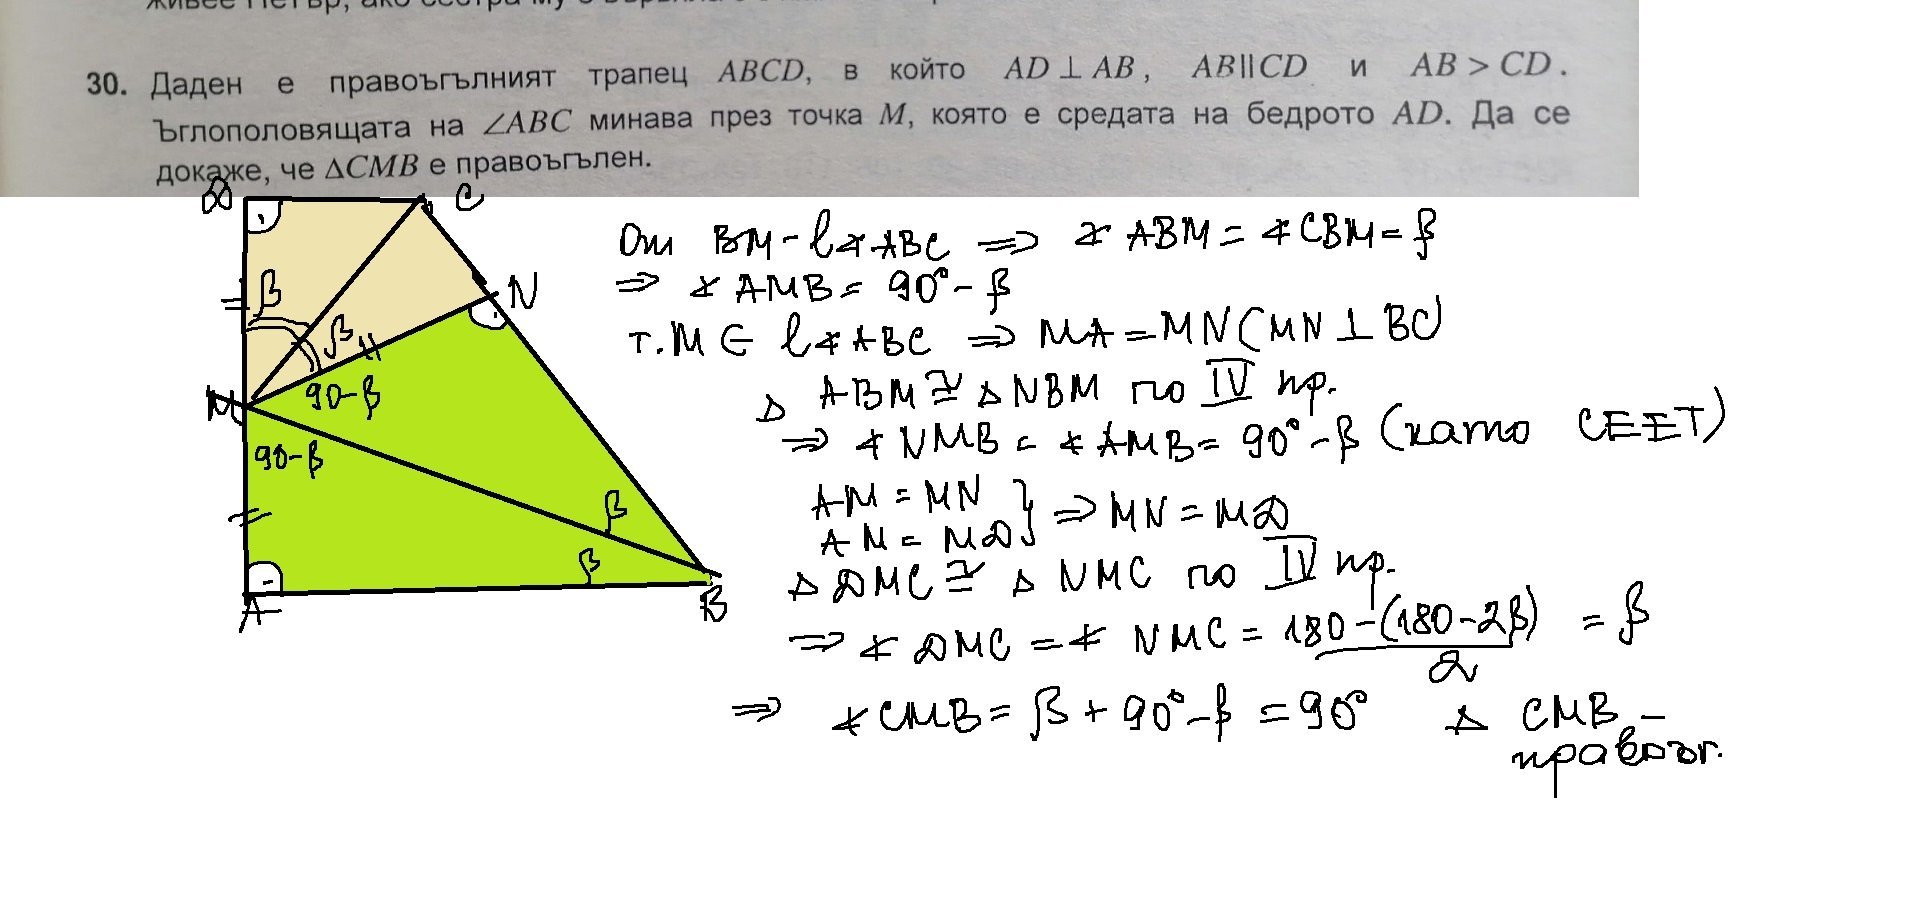 живее Петър, ако сестра му е
30. Даден е правоъгълният трапец ABCD, в който AD ⊥ AB, AB||CD и AB > CD.
Ъглополовящата на ∠ABC минава през точка M, която е средата на бедрото AD. Да се
докаже, че ΔCMB е правоъгълен.
D C
β N
β
M 90-β
90-β
β
β
A B
От BM - l∢ABC ⇒ ∢ABM = ∢CBM = β
⇒ ∢AMB = 90° - β
т. M ∈ l∢ABC ⇒ MA = MN (MN ⊥ BC)
Δ ABM ≅ Δ NBM по IV пр.
⇒ ∢NMB = ∢AMB = 90° - β (като СЕЕТ)
AM = MN
AM = MD } ⇒ MN = MD
Δ DMC ≅ Δ NMC по IV пр.
⇒ ∢DMC = ∢NMC = 180-(180-2β) = β
2
⇒ ∢CMB = β + 90° - β = 90° Δ CMB -
правоъг.